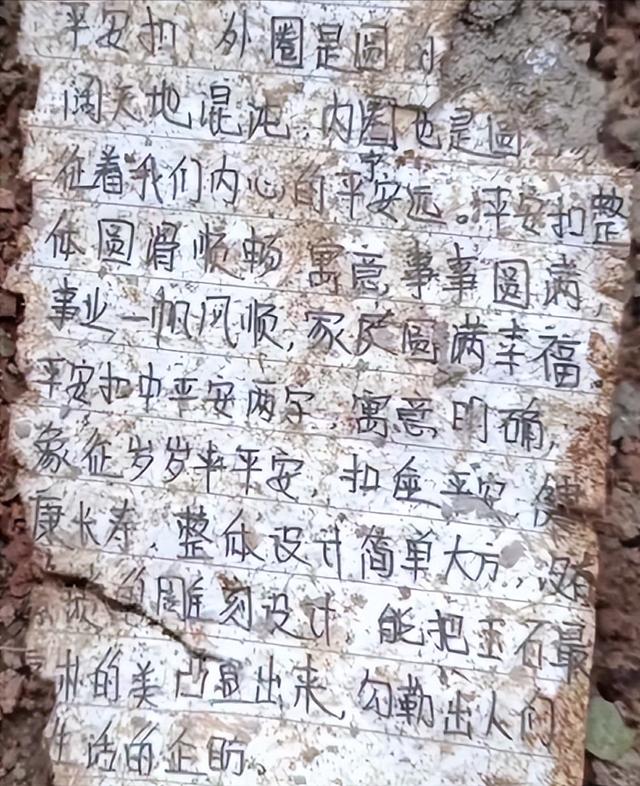 平安扣 外圈是圆
阔天地混沌,内圈也是回
征着我们内心的平安宁远。平安扣整
体圆滑顺畅 寓意事事圆满,
事业一帆风顺,家庭圆满幸福。
平安扣中平安两字,寓意明确,
象征岁岁平安,扣 平安,健
康长寿,整体设计简单大方,没有
雕刻设计,能把玉石最
的美凸显出来,勾勒出人们
生活的企盼。